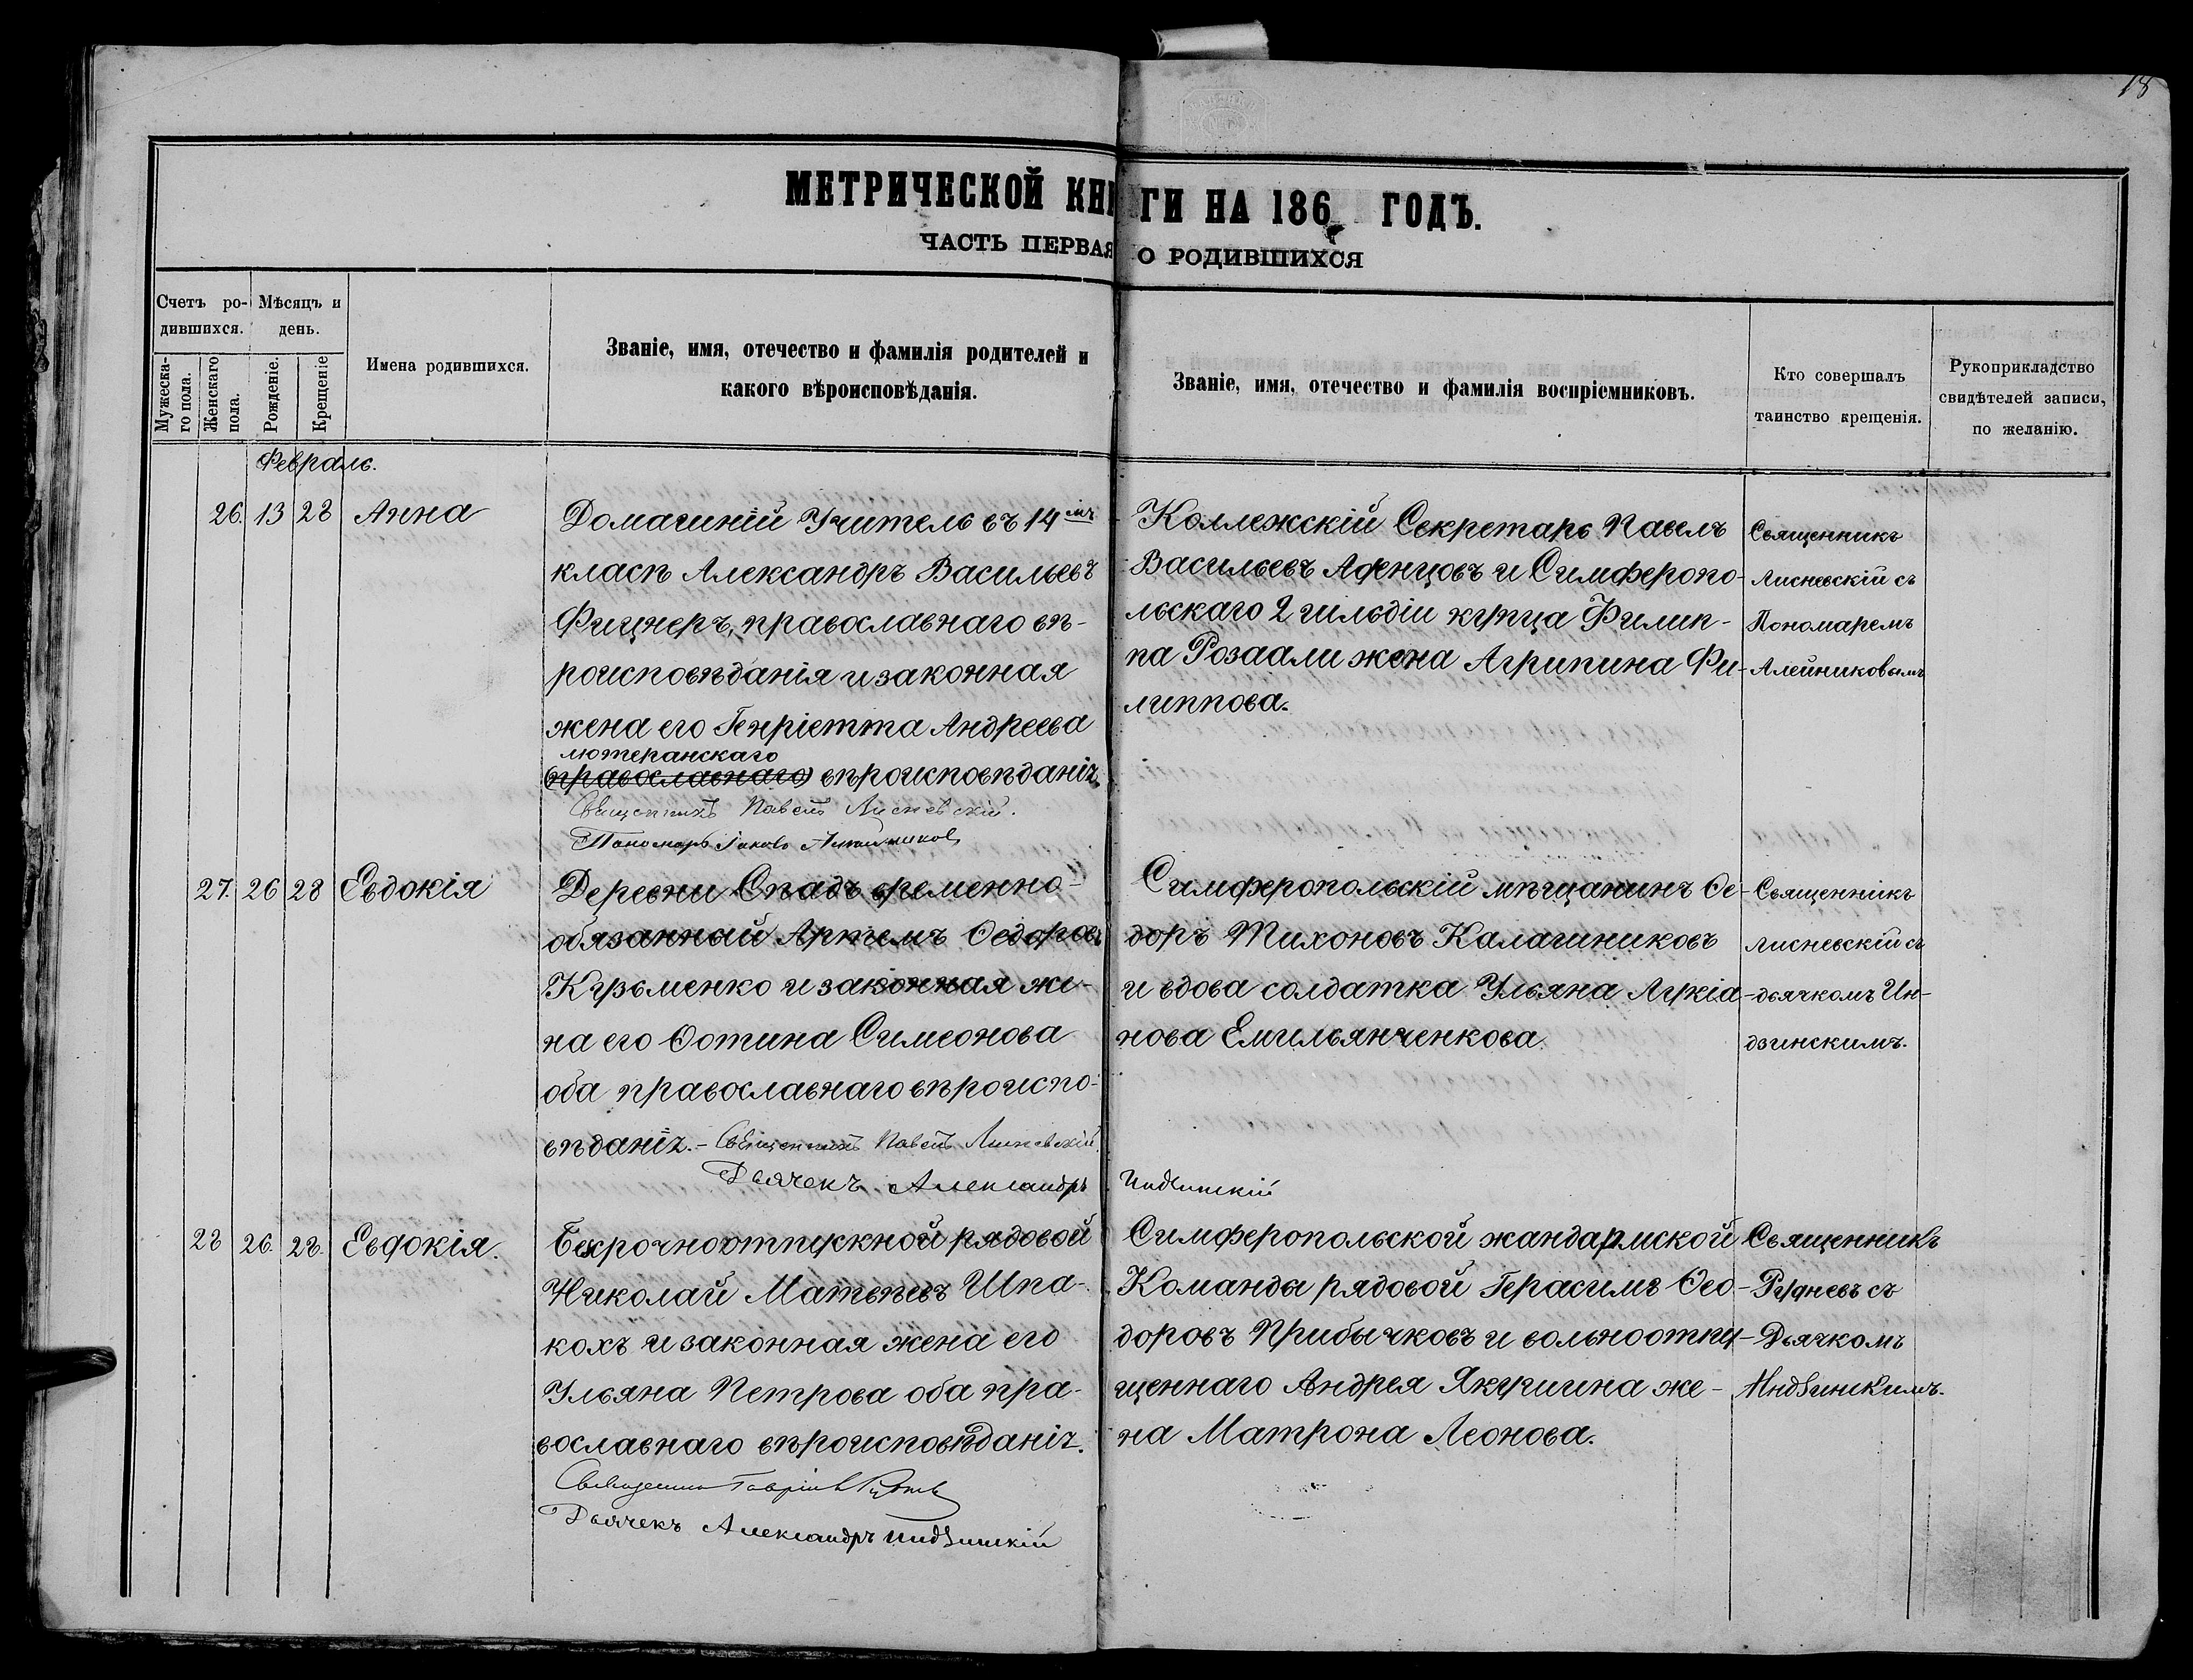 18
МЕТРИЧЕСКОЙ КНИГИ НА 186 ГОДЪ.
ЧАСТЬ ПЕРВАЯ О РОДИВШИХСЯ
Счетъ ро-
дившихся.
Мужеска-
го пола.
Женскаго
пола.
Мѣсяцъ и
день.
Рожденіе.
Крещеніе
Имена родившихся.
Званіе, имя, отечество и фамилія родителей и
какого вѣроисповѣданія.
Званіе, имя, отечество и фамилія воспріемниковъ.
Кто совершалъ
таинство крещенія.
Рукоприкладство
свидѣтелей записи,
по желанію.
Февраль.
26. 13 28 Анна
Домашній Учитель въ 14мъ
класѣ Александръ Васильевъ
Фицнеръ, православнаго вѣ-
роисповѣданія и законная
жена его Генріетта Андреева
лютеранскаго
(православнаго) вѣроисповѣданія.
Священникъ Павелъ Лисневскій.
Пономарь Іаковъ Алейниковъ
Коллежскій Секретарь Павелъ
Васильевъ Афенцовъ и Симферопо-
льскаго 2 гильдіи купца Филип-
па Розаали жена Агрипина Фи-
липпова.
Священникъ
Лисневскій съ
Пономаремъ
Алейниковымъ
27. 26 28 Евдокія
Деревни Спадъ временно-
обязанный Артемъ Ѳедоровъ
Кузьменко и законная же-
на его Ѳотина Симеонова
оба православнаго вѣроиспо-
вѣданія. - Священникъ Павелъ Лисневскій.
Дьячекъ Александръ Индзинскій
Симферопольскій мѣщанинъ Ѳе-
доръ Тихоновъ Калашниковъ
и вдова солдатка Ульяна Лукіа-
нова Емильянченкова.
Священникъ
Лисневскій съ
дьячкомъ Ин-
дзинскимъ.
28 26. 28. Евдокія.
Безсрочноотпускной рядовой
Николай Матвѣевъ Шпа-
кохъ и законная жена его
Ульяна Петрова оба пра-
вославнаго вѣроисповѣданія.
Священникъ Гавріилъ Рудневъ
Дьячекъ Александръ Индзинскій
Симферопольской жандармской
Команды рядовой Герасимъ Ѳео-
доровъ Прибычковъ и вольноотпу-
щеннаго Андрея Якушина же-
на Матрона Леонова.
Священникъ
Рудневъ съ
Дьячкомъ
Индзинскимъ.